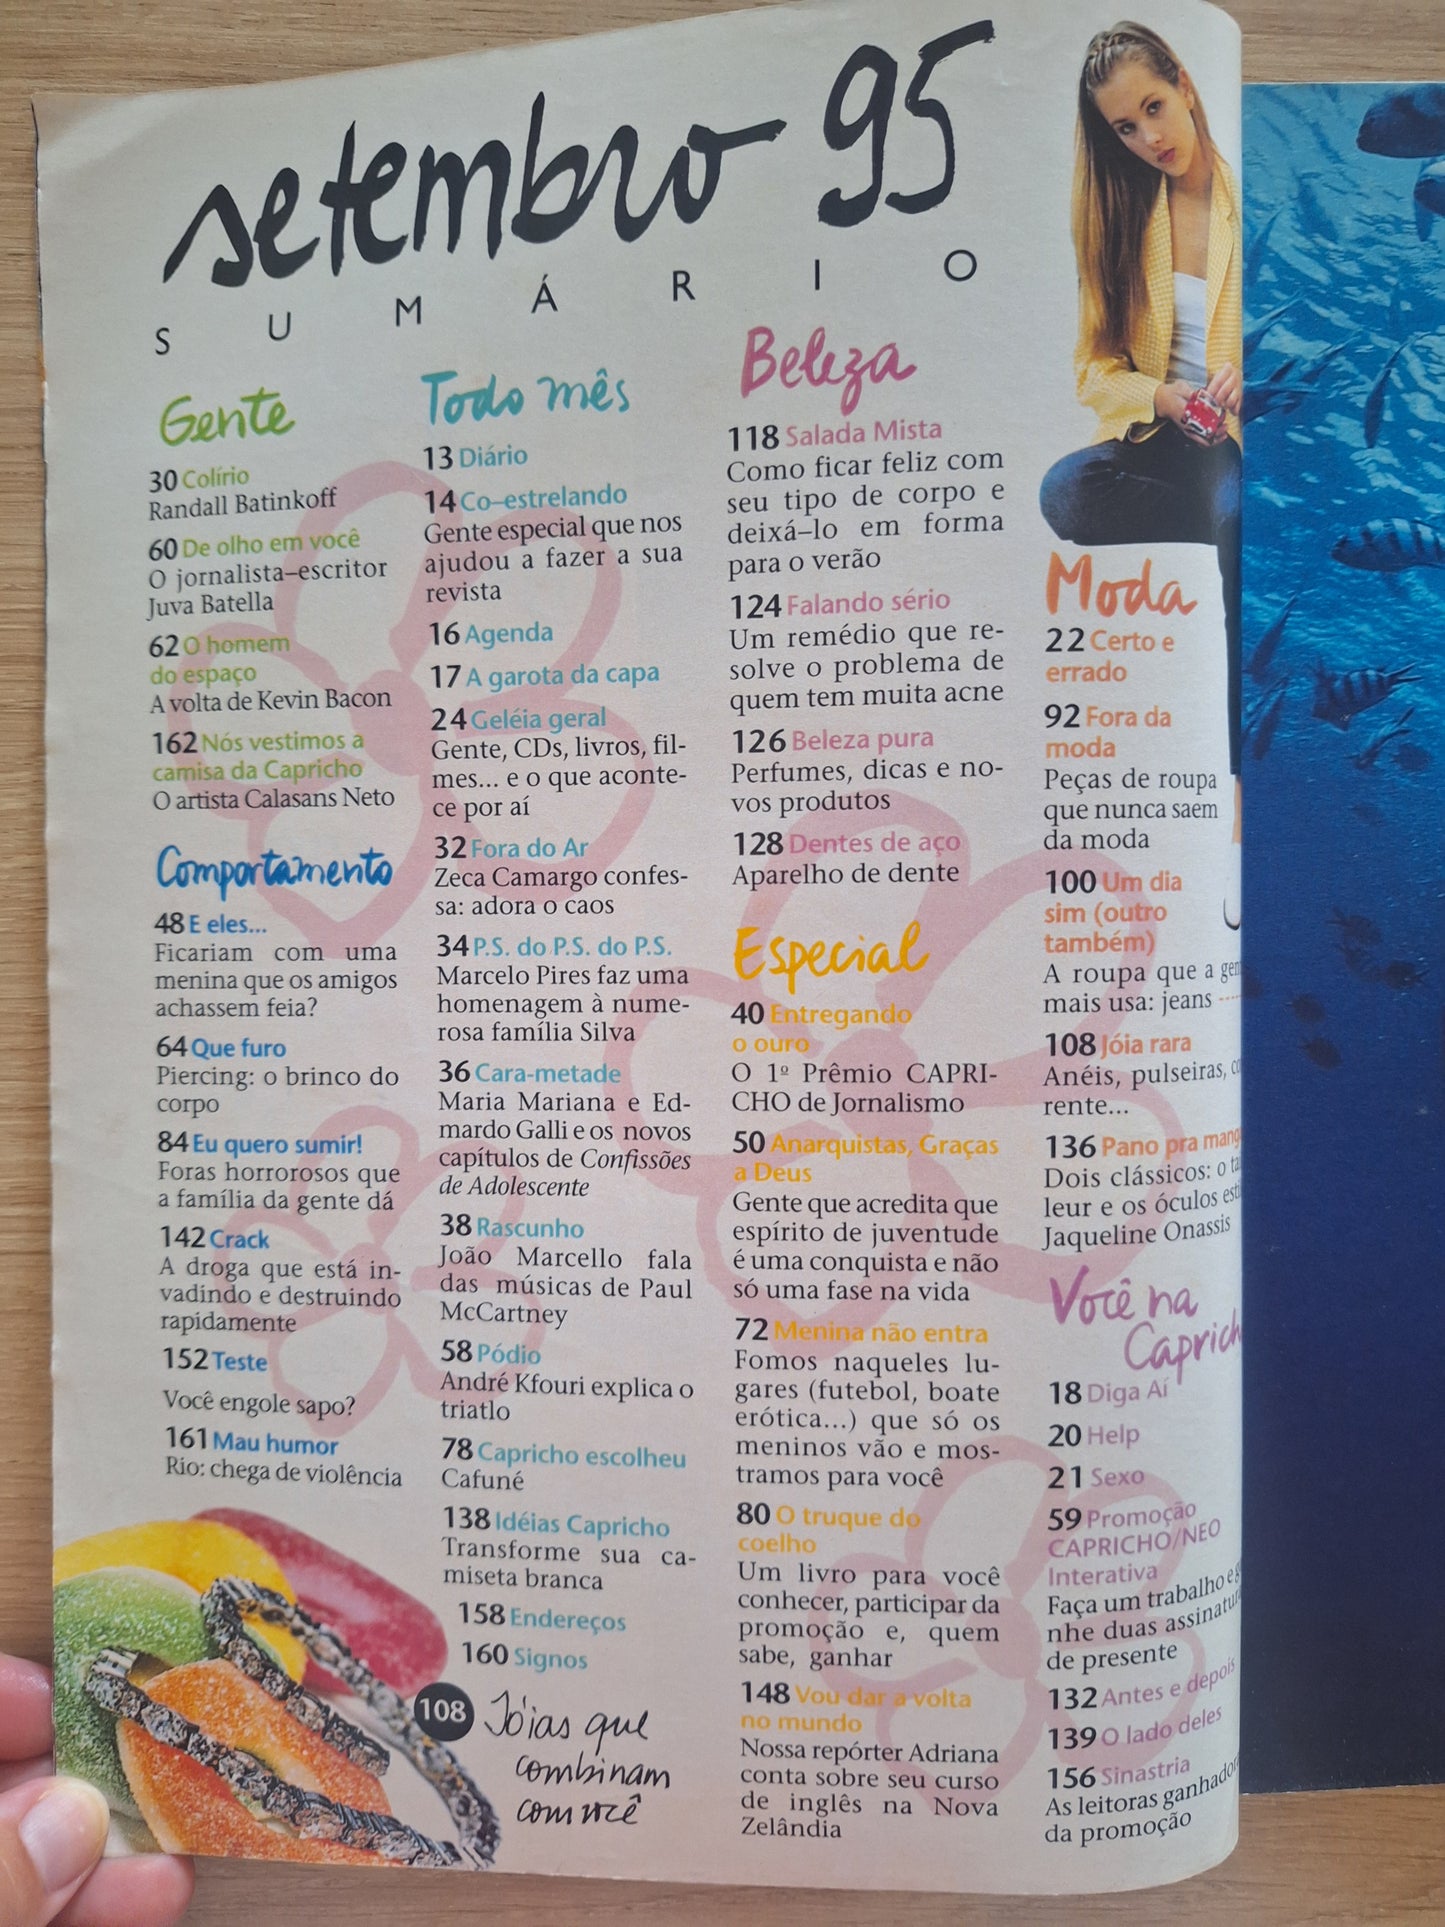 setembro 95
SUMÁRIO
Gente
30 Colírio
Randall Batinkoff
60 De olho em você
O jornalista–escritor
Juva Batella
62 O homem
do espaço
A volta de Kevin Bacon
162 Nós vestimos a
camisa da Capricho
O artista Calasans Neto
Comportamento
48 E eles...
Ficariam com uma
menina que os amigos
achassem feia?
64 Que furo
Piercing: o brinco do
corpo
84 Eu quero sumir!
Foras horrorosos que
a família da gente dá
142 Crack
A droga que está in-
vadindo e destruindo
rapidamente
152 Teste
Você engole sapo?
161 Mau humor
Rio: chega de violência
Todo mês
13 Diário
14 Co–estrelando
Gente especial que nos
ajudou a fazer a sua
revista
16 Agenda
17 A garota da capa
24 Geléia geral
Gente, CDs, livros, fil-
mes... e o que aconte-
ce por aí
32 Fora do Ar
Zeca Camargo confes-
sa: adora o caos
34 P.S. do P.S. do P.S.
Marcelo Pires faz uma
homenagem à nume-
rosa família Silva
36 Cara-metade
Maria Mariana e Ed-
mardo Galli e os novos
capítulos de Confissões
de Adolescente
38 Rascunho
João Marcello fala
das músicas de Paul
McCartney
58 Pódio
André Kfouri explica o
triatlo
78 Capricho escolheu
Cafuné
138 Idéias Capricho
Transforme sua ca-
miseta branca
158 Endereços
160 Signos
108 Jóias que
combinam
com você
Beleza
118 Salada Mista
Como ficar feliz com
seu tipo de corpo e
deixá–lo em forma
para o verão
124 Falando sério
Um remédio que re-
solve o problema de
quem tem muita acne
126 Beleza pura
Perfumes, dicas e no-
vos produtos
128 Dentes de aço
Aparelho de dente
Especial
40 Entregando
o ouro
O 1º Prêmio CAPRI-
CHO de Jornalismo
50 Anarquistas, Graças
a Deus
Gente que acredita que
espírito de juventude
é uma conquista e não
só uma fase na vida
72 Menina não entra
Fomos naqueles lu-
gares (futebol, boate
erótica...) que só os
meninos vão e mos-
tramos para você
80 O truque do
coelho
Um livro para você
conhecer, participar da
promoção e, quem
sabe, ganhar
148 Vou dar a volta
no mundo
Nossa repórter Adriana
conta sobre seu curso
de inglês na Nova
Zelândia
Moda
22 Certo e
errado
92 Fora da
moda
Peças de roupa
que nunca saem
da moda
100 Um dia
sim (outro
também)
A roupa que a
mais usa: jeans
108 Jóia rara
Anéis, pulseiras,
rente...
136 Pano pra
Dois clássicos: o
leur e os óculos
Jaqueline Onassis
Você na
Capricho
18 Diga Aí
20 Help
21 Sexo
59 Promoção
CAPRICHO/NEO
Interativa
Faça um trabalho e
nhe duas
de presente
132 Antes e depois
139 O lado deles
156 Sinastria
As leitoras
da promoção